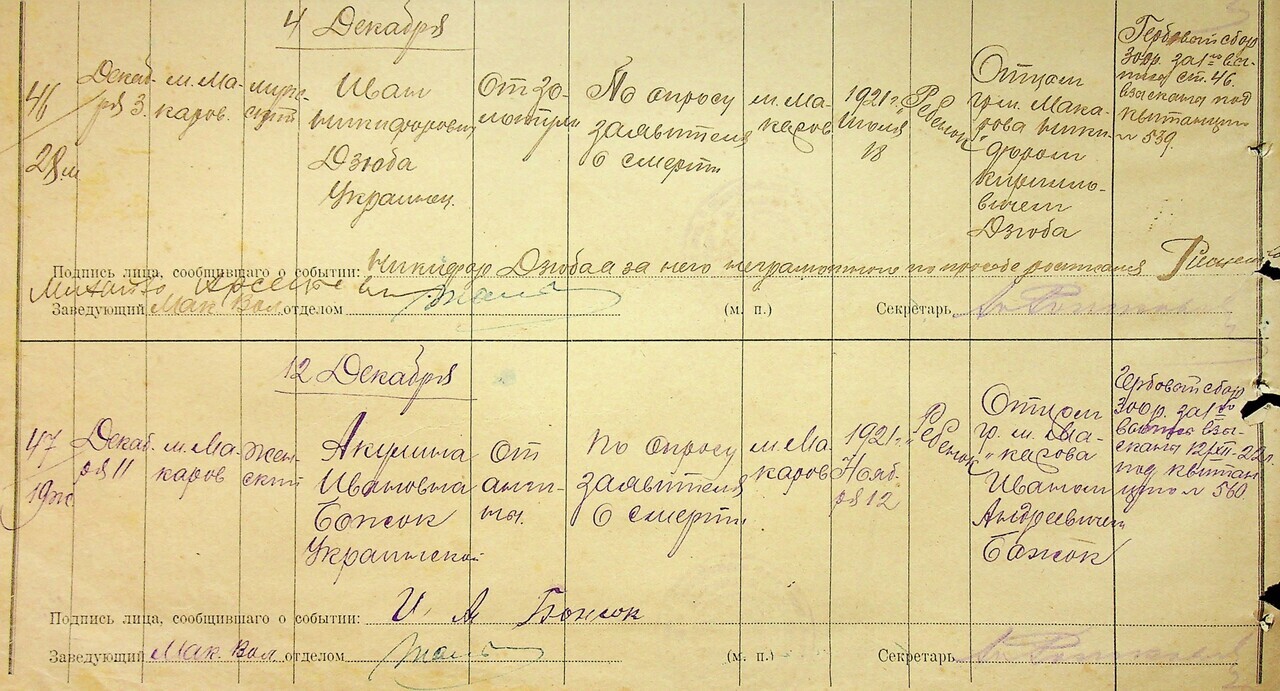 4 Декабря
46
28 м
Декаб-
ря 3.
м. Ма-
каров.
мужс-
кий
Иван
Никифорович
Дзюба
Украинец.
От зо-
лотухи
По опросу
заявителя
о смерти
м. Ма-
каров
1921 г.
Июля
18
Ребенок
Отцом
гр. м. Мака-
рова Ники-
фором
Кирилло-
вичем
Дзюба
Гербовый сбор
300 р. за 1 вы-
пись ст. 46.
взысканы под
квитанцию
№ 539.
Подпись лица, сообщившего о событии: Никифор Дзюба а за него неграмотного по просьбе расписался
Заведующий Мак Вол отделом
(м. п.)
Секретарь
12 Декабря
47
19 ж
Декаб-
ря 11
м. Ма-
каров
жен-
ский
Акулина
Ивановна
Божок
Украинская
от
анги-
ны.
По опросу
заявителя
о смерти
м. Ма-
каров
1921 г.
Нояб-
ря 12
Ребенок
Отцом
гр. м. Ма-
карова
Иваном
Андреевичем
Божок
Гербовый сбор
300 р. за 1
выпись взы-
сканы 12/XII-22 г.
под квитан-
цию № 560
Подпись лица, сообщившего о событии: И. А Божок
Заведующий Мак. Вол. отделом
(м. п.)
Секретарь